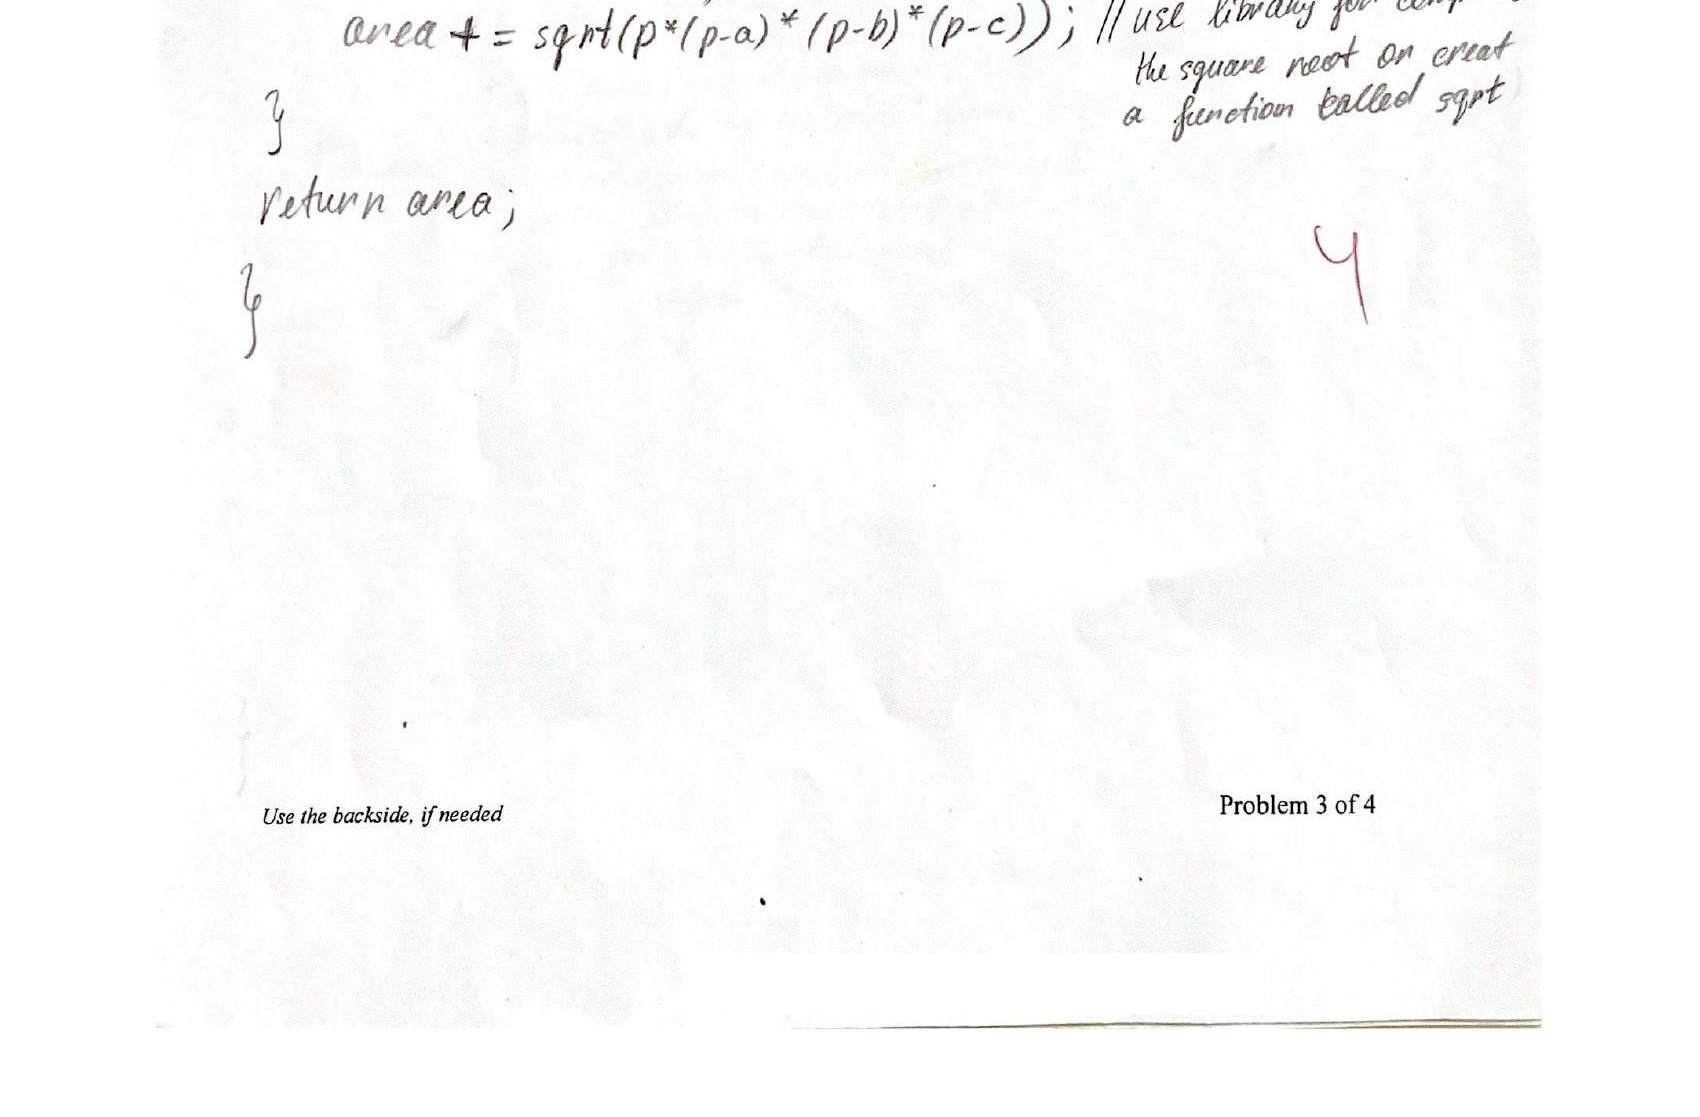 area += sqrt(p*(p-a)*(p-b)*(p-c)); // use library for
the square root or creat
a function called sqrt
}
return area;
}
4
Use the backside, if needed
Problem 3 of 4